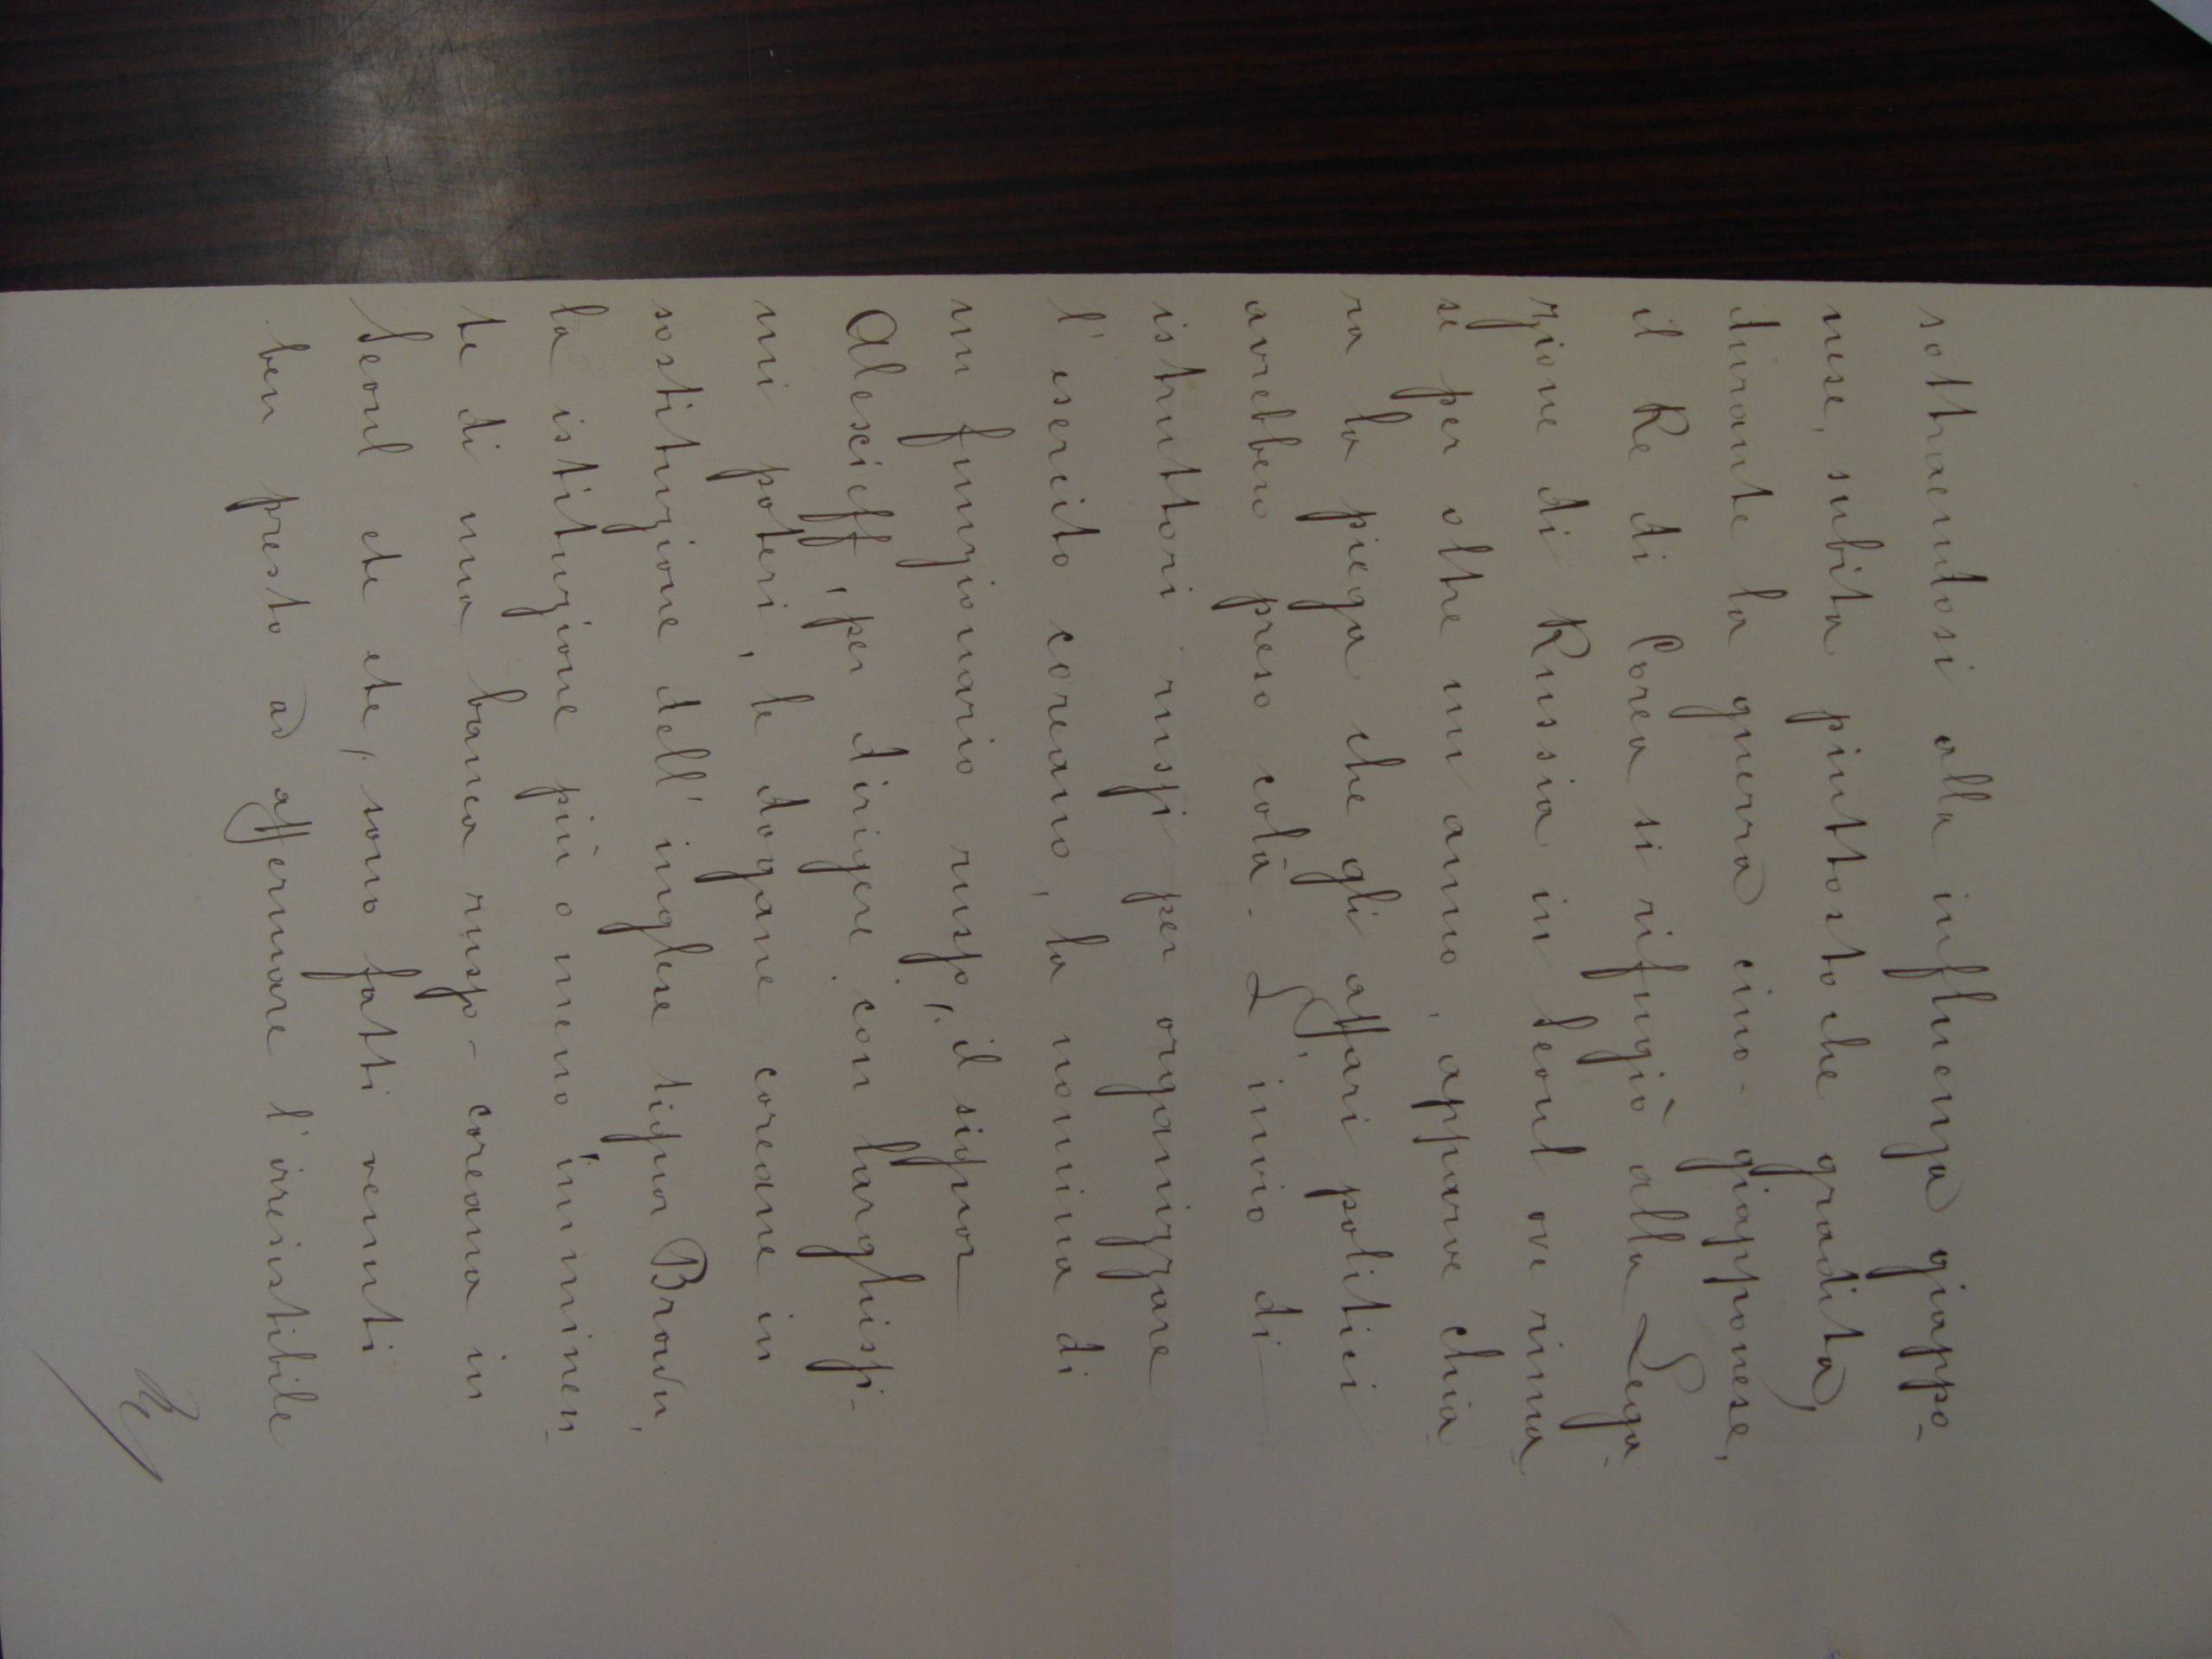 sottraendosi alla influenza giappo-
nese, subita piuttosto che gradita,
durante la guerra cino-giapponese,
il Re di Corea si rifugiò alla Lega-
zione di Russia in Seoul ove rima-
se per oltre un anno, apparve chia-
ra la piega che gli affari politici
avrebbero preso colà. L'invio di
istruttori russi per organizzare
l'esercito coreano, la nomina di
un funzionario russo, il signor
Alexeieff, per dirigere, con larghissi-
mi poteri, le dogane coreane in
sostituzione dell'inglese signor Brown,
la istituzione più o meno imminen-
te di una banca russo-coreana in
Seoul etc etc, sono fatti venuti
ben presto ad affermare l'irresistibile